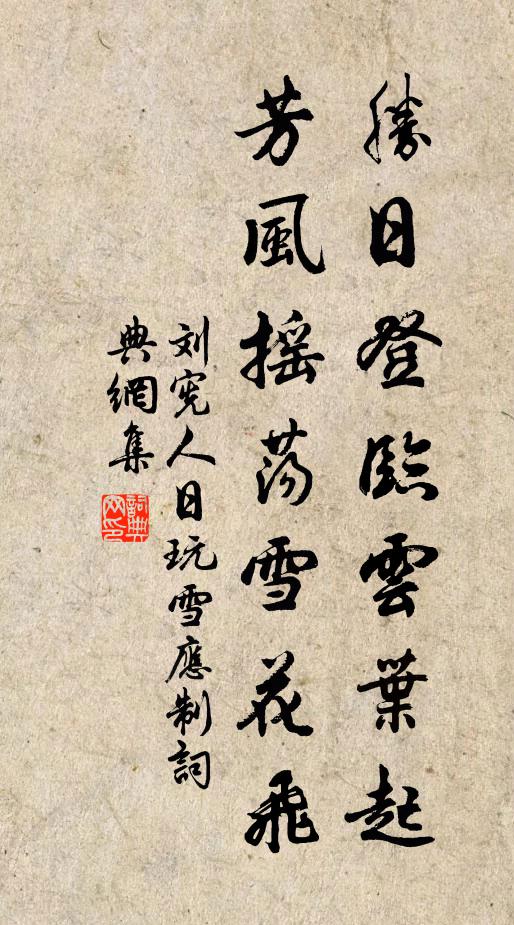 勝日登臨雲葉起
芳風搖荡雪花飛
刘宪人日玩雪應制詞
典網集
詞典网印